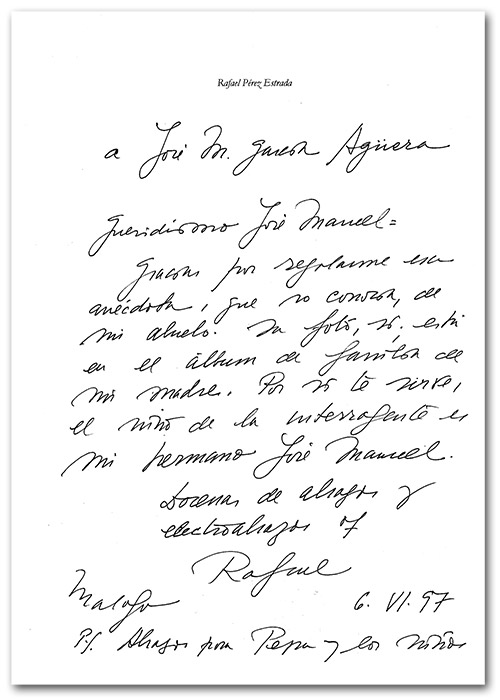 Rafael Pérez Estrada
a José M. García Agüera
Queridísimo José Manuel=
Gracias por regalarme esa
anécdota, que no conocía, de
mi abuelo. La foto, sí, está
en el álbum de familia de
mi madre. Por si te sirve,
el niño de la interrogante es
mi hermano José Manuel.
Docenas de abrazos y
electroabrazos
Rafael
Málaga 6. VI. 97
P.S. Abrazos para Pepa y los niños